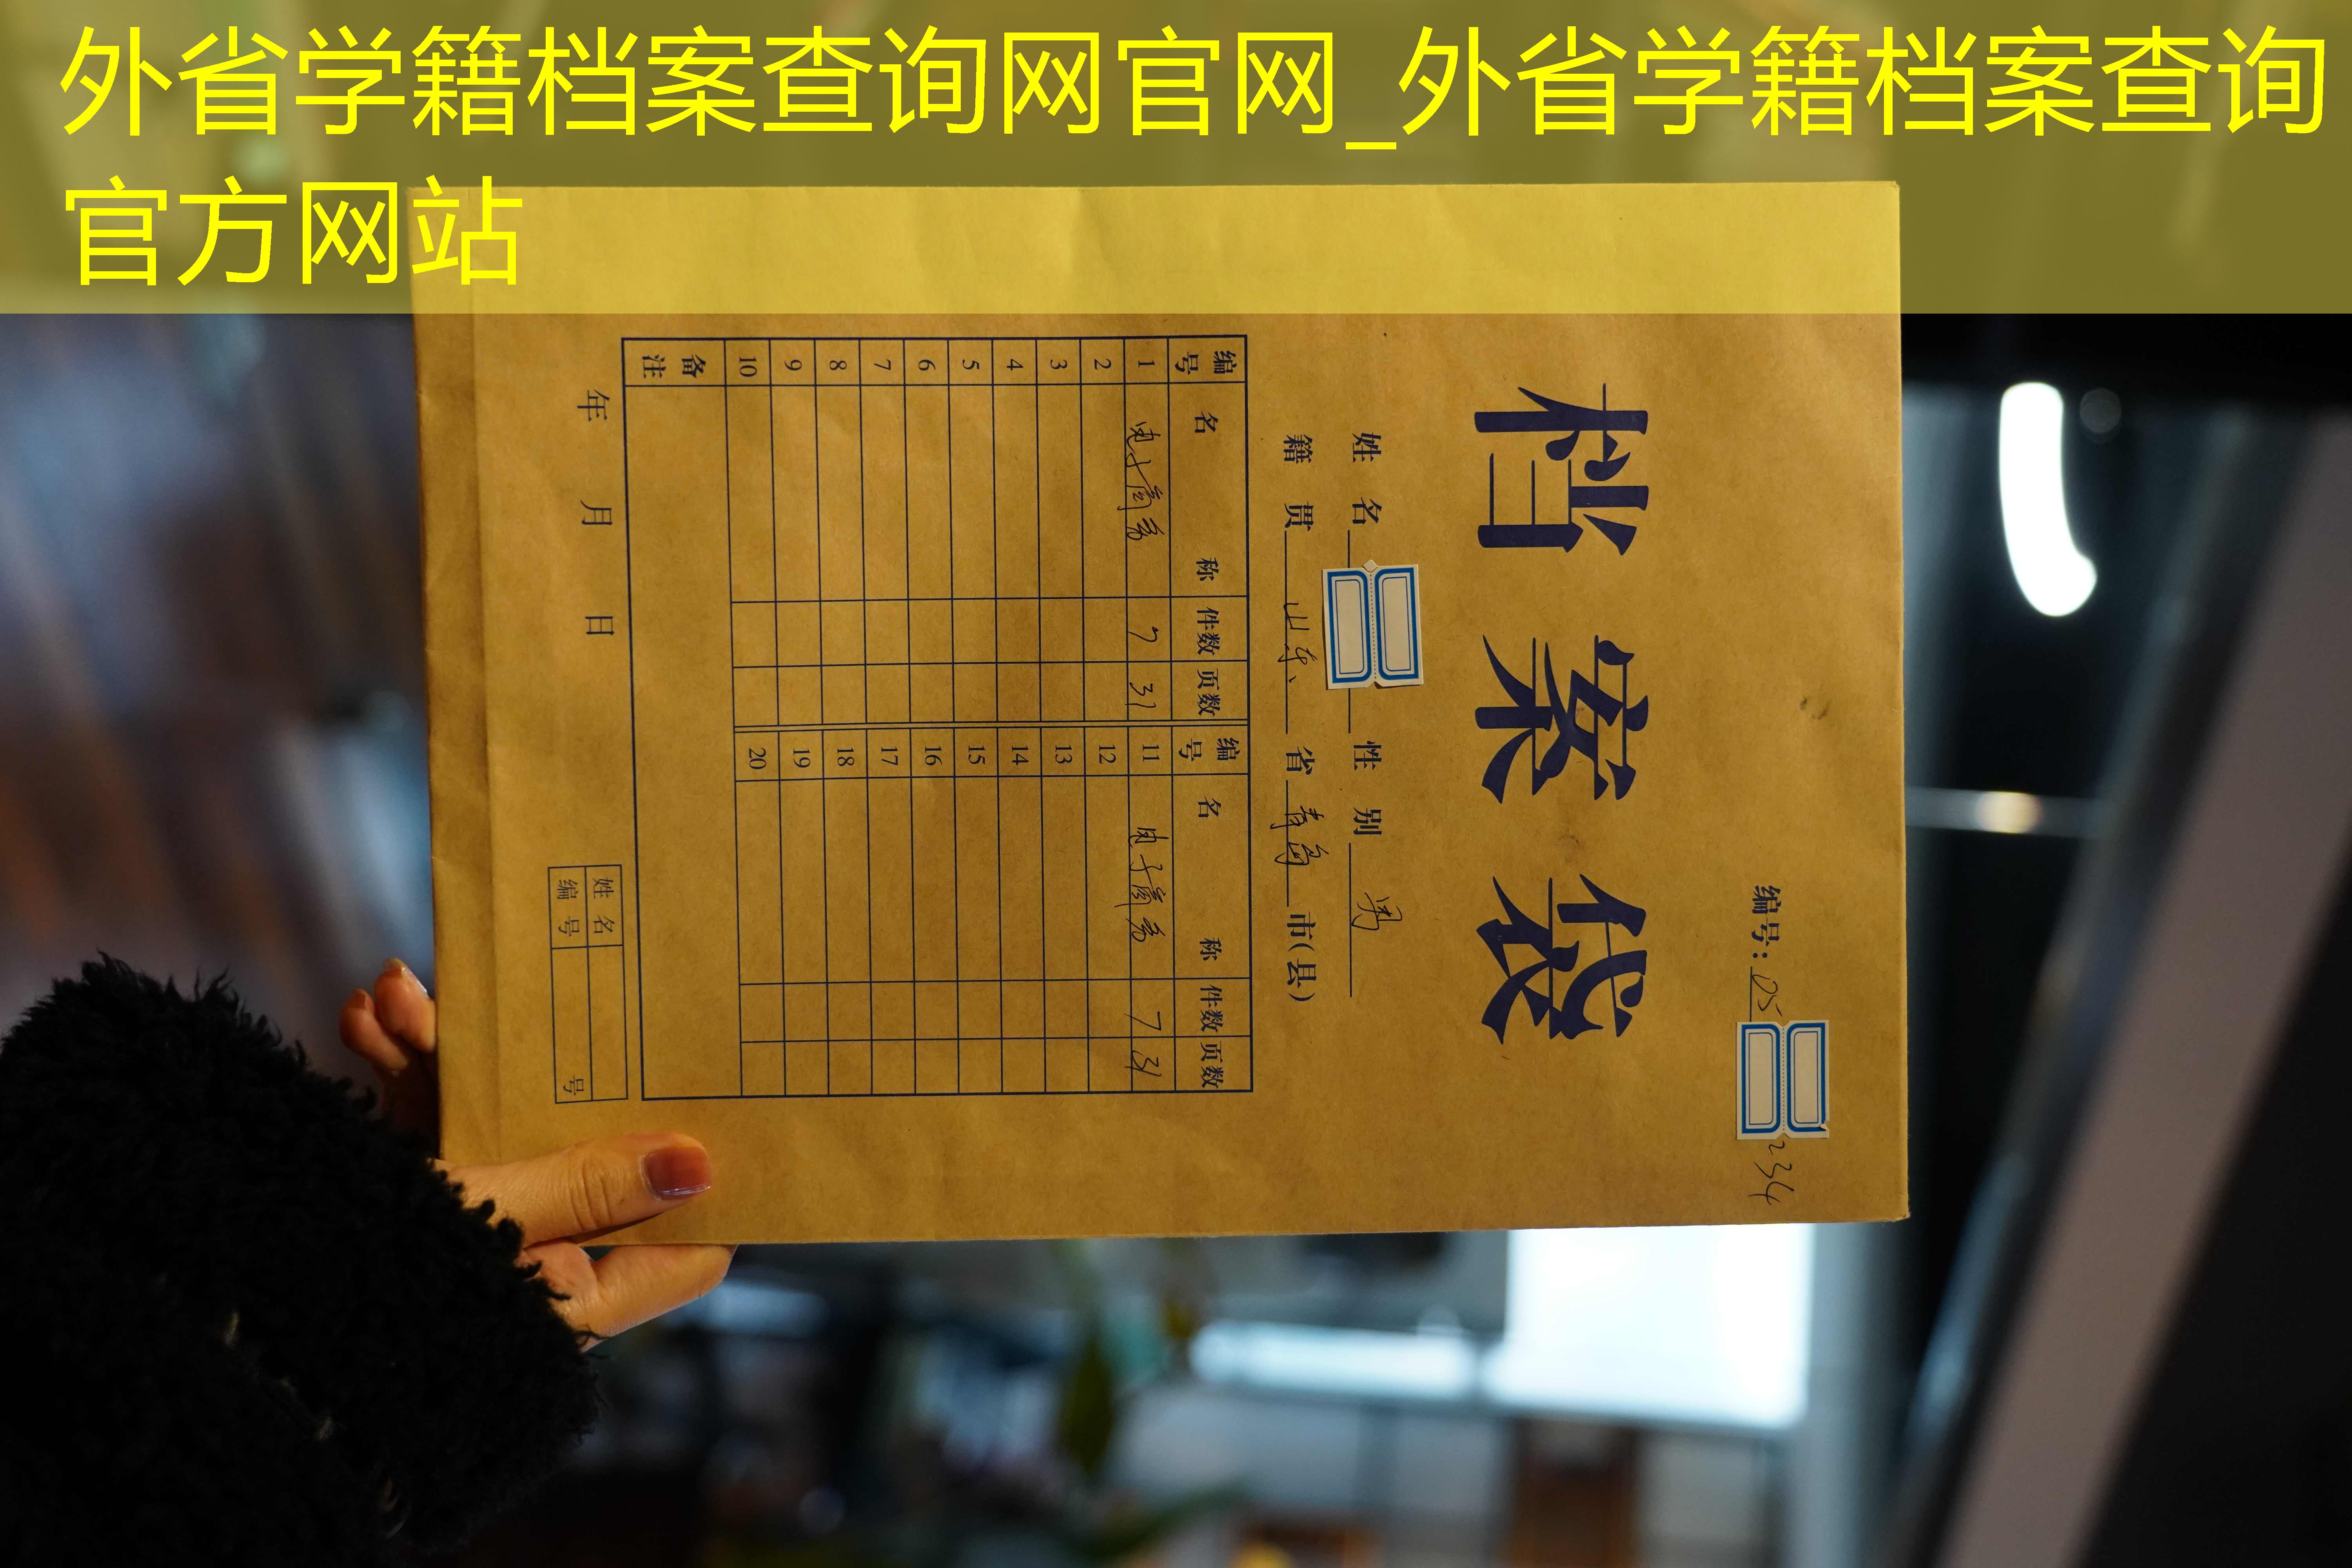 外省学籍档案查询网官网_外省学籍档案查询
官方网站
编号：05
234
档案袋
姓名 性别 男
籍贯 山东 省 青岛 市(县)
编号 名称 件数 页数 编号 名称 件数 页数
1 7 31 11 7 31
2 12
3 13
4 14
5 15
6 16
7 17
8 18
9 19
10 20
备注
年 月 日
姓名
编号 号